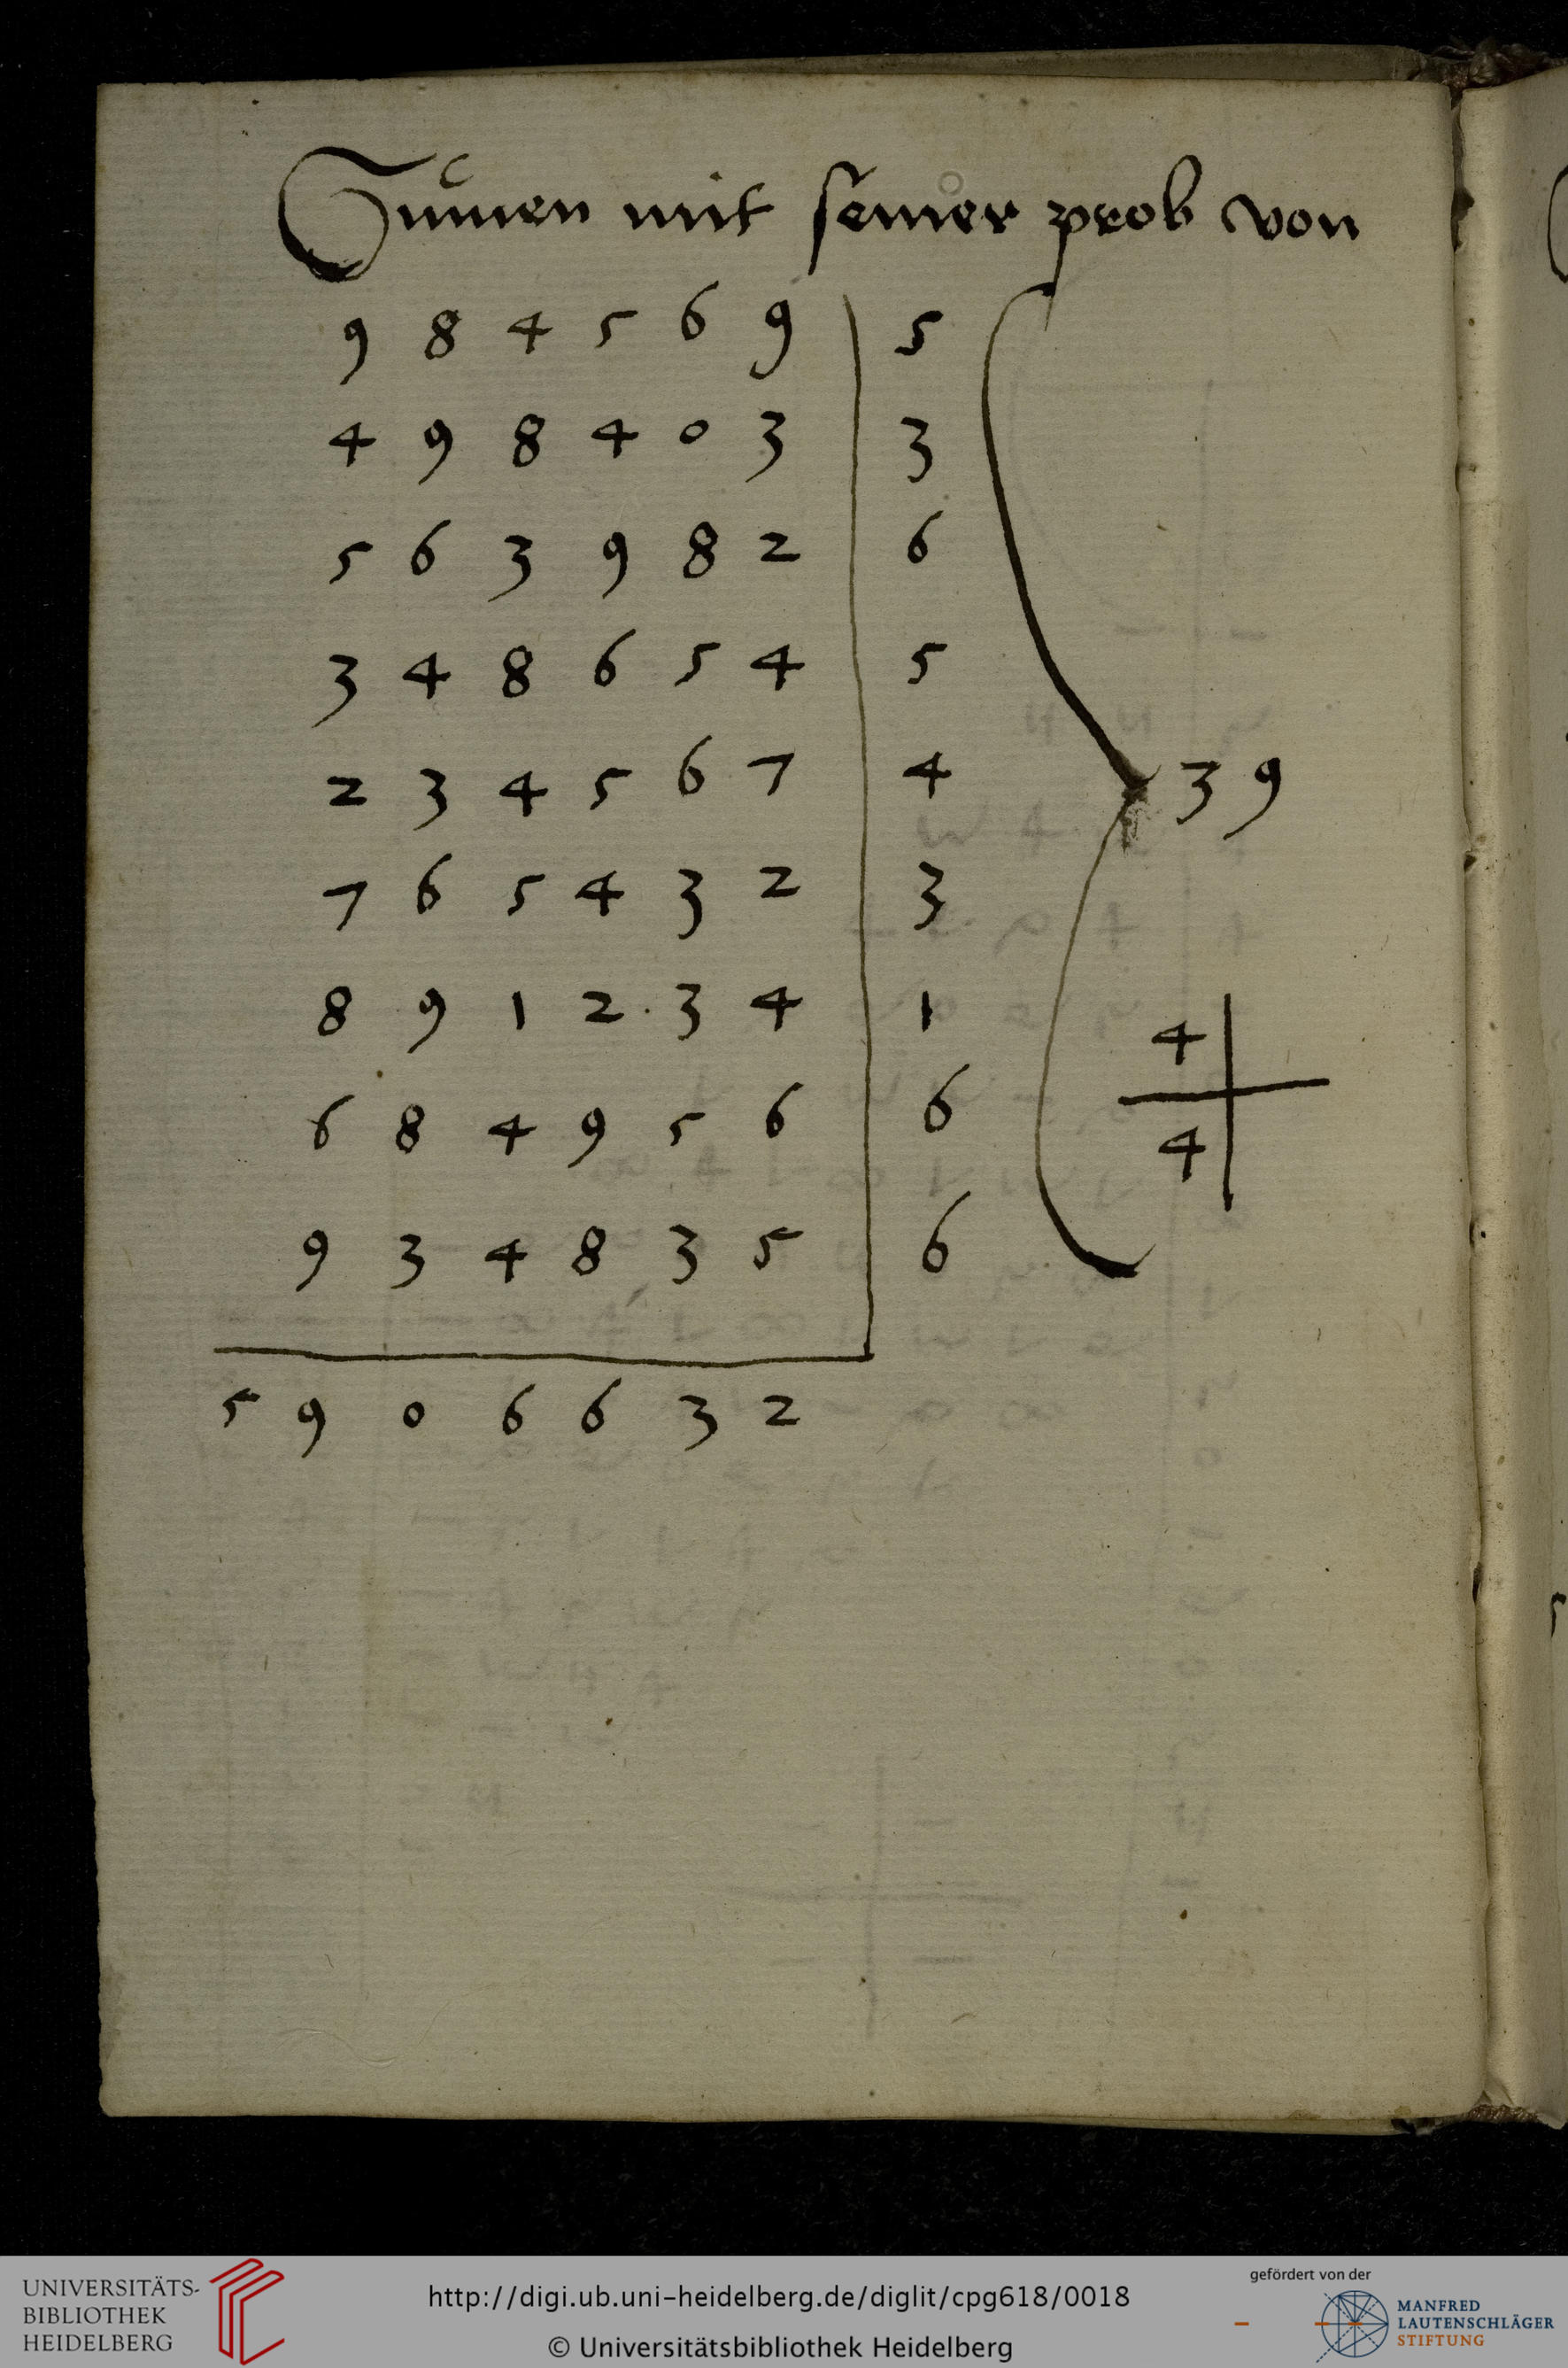 Sum̃en mit seiner prob von
9 8 4 5 6 9 | 5
4 9 8 4 0 3 | 3
5 6 3 9 8 2 | 6
3 4 8 6 5 4 | 5
2 3 4 5 6 7 | 4
39
7 6 5 4 3 2 | 3
8 9 1 2 . 3 4 | 1
4
6 8 4 9 5 6 | 6
4
9 3 4 8 3 5 | 6
5 9 0 6 6 3 2
UNIVERSITÄTS-
BIBLIOTHEK
HEIDELBERG
http://digi.ub.uni-heidelberg.de/diglit/cpg618/0018
© Universitätsbibliothek Heidelberg
gefördert von der
MANFRED
LAUTENSCHLÄGER
STIFTUNG